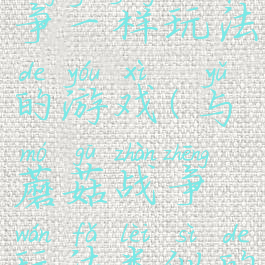 争一样玩法
de yóu xì yǔ
的游戏(与
mó gu zhàn zhēng
蘑菇战争
wán fǎ lèi sì de